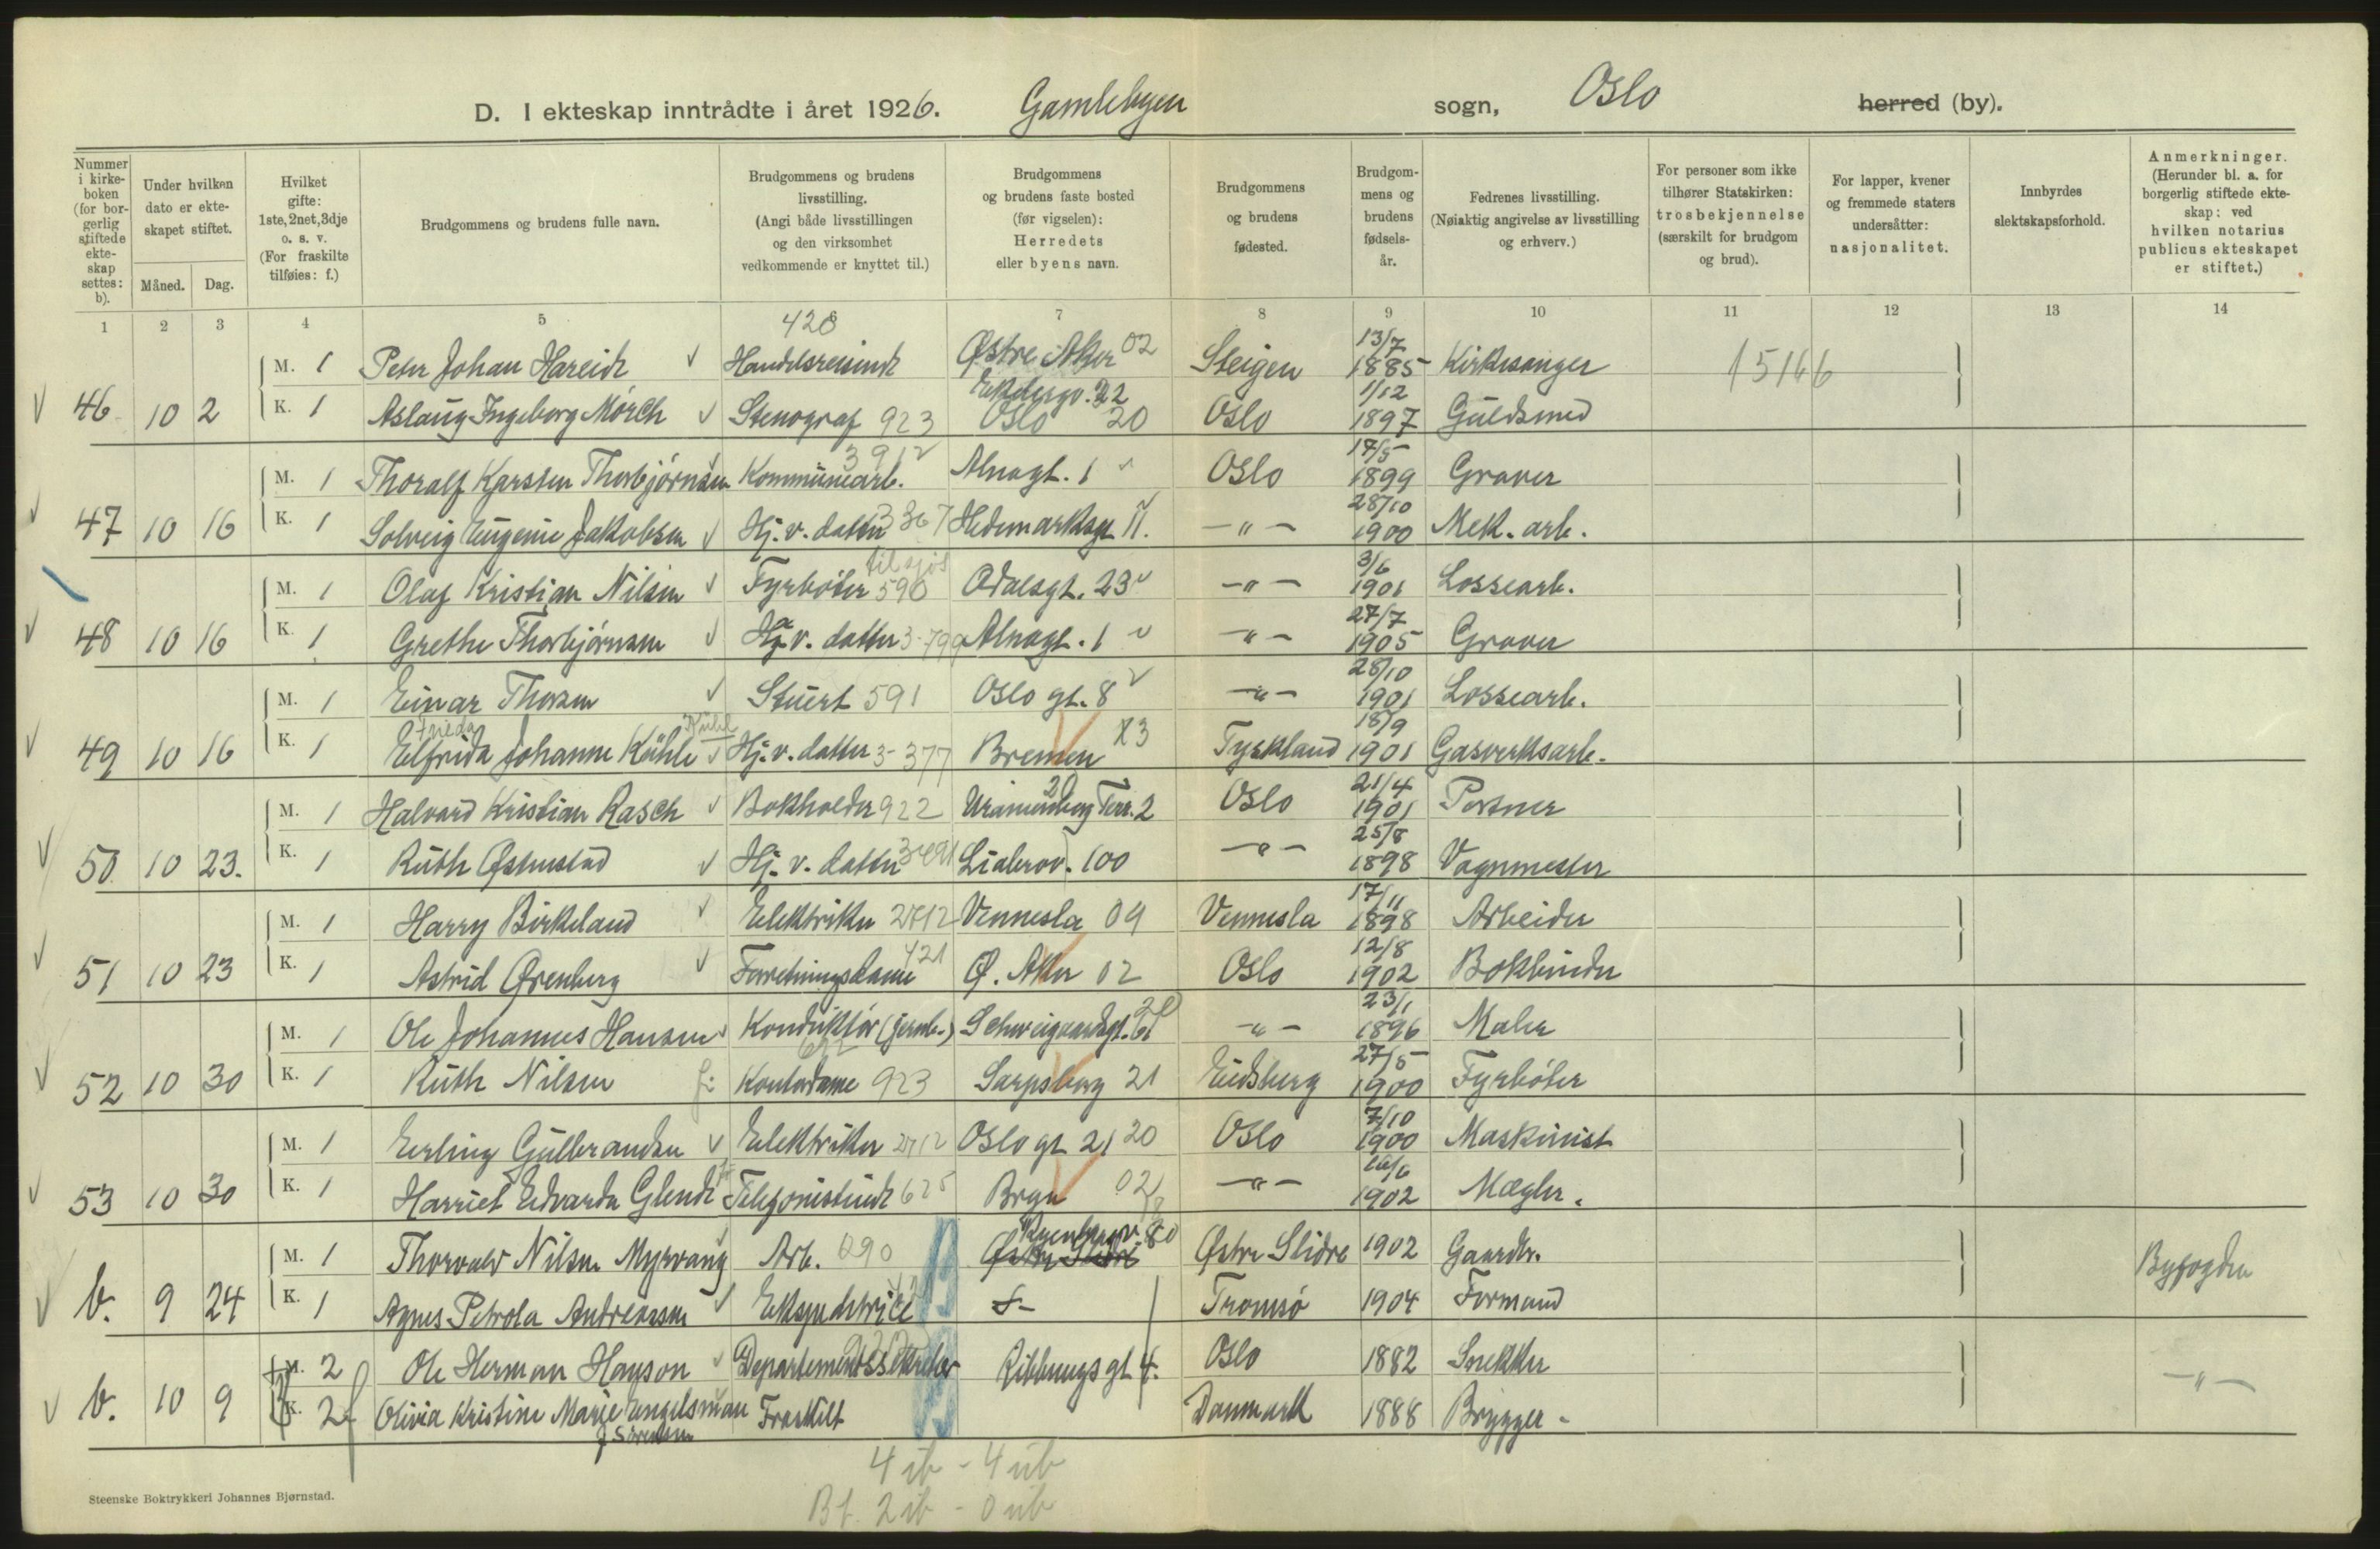 D. I ekteskap inntrådte i året 1926. Gamlebyen sogn, Oslo herred (by).
Nummer i kirkeboken (for borgerlig stiftede ekteskap settes: b).
Under hvilken dato er ekteskapet stiftet.
Måned. Dag.
Hvilket gifte: 1ste, 2net, 3dje o. s. v. (For fraskilte tilføies: f.)
Brudgommens og brudens fulle navn.
Brudgommens og brudens livsstilling. (Angi både livsstillingen og den virksomhet vedkommende er knyttet til.)
Brudgommens og brudens faste bosted (før vigselen): Herredets eller byens navn.
Brudgommens og brudens fødested.
Brudgommens og brudens fødselsår.
Fedrenes livsstilling. (Nøiaktig angivelse av livsstilling og erhverv.)
For personer som ikke tilhører Statskirken: trosbekjennelse (særskilt for brudgom og brud).
For lapper, kvener og fremmede staters undersåtter: nasjonalitet.
Innbyrdes slektskapsforhold.
Anmerkninger. (Herunder bl. a. for borgerlig stiftede ekteskap: ved hvilken notarius publicus ekteskapet er stiftet.)
1 2 3 4 5 6 7 8 9 10 11 12 13 14
M. 1 Peter Johan Hareide Handelsreisende Østre Aker 02 Steigen 13/7 1885 Kirkesanger 15166
46 10 2 K. 1 Aslaug Ingeborg Mörch Stenograf 923 Oslo 20 Oslo 1/12 1897 Guldsmed
M. 1 Thoralf Karsten Thorbjörnsen Kommunearb. Alnagt. 1 Oslo 17/5 1899 Graver
47 10 16 K. 1 Solveig Eugenie Jakobsen Hj. v. datter 367 Hedemarksgt. 11. -"- 28/10 1900 Mek. arb.
M. 1 Olaf Kristian Nilsen Fyrböter til sjøs 590 Odalsgt. 23 -"- 3/6 1901 Lossearb.
48 10 16 K. 1 Grethe Thorbjörnsen Hj. v. datter 3-799 Alnagt. 1 -"- 27/7 1905 Graver
M. 1 Einar Thorsen Stuert 591 Oslo gt. 8 -"- 28/10 1901 Lossearb.
49 10 16 K. 1 Elfrida Johanne Kühle Hj. v. datter 3-377 Bremen Tyskland 18/9 1901 Gasverksarb.
M. 1 Halvard Kristian Rasch Bokholder 922 Uranienborg Terr. 2 Oslo 21/4 1901 Portner
50 10 23. K. 1 Ruth Østenstad Hj. v. datter Lialerov. 100 -"- 25/8 1898 Vognmester
M. 1 Harry Birkeland Elektriker 2712 Vennesla 09 Vennesla 17/11 1898 Arbeider
51 10 23 K. 1 Astrid Ørenberg Forretningsdame 421 Ø. Aker 02 Oslo 12/8 1902 Bokbinder
M. 1 Ole Johannes Hansen Konduktör (jernb.) Schweigaardsgt. -"- 23/1 1896 Maler
52 10 30 K. 1 Ruth Nilsen Kontordame 923 Sarpsborg 21 Eidsberg 27/5 1900 Fyrböter
M. 1 Erling Gulbrandsen Elektriker 2712 Oslo gt 21 20 Oslo 7/10 1900 Maskinist
53 10 30 K. 1 Harriet Edvarda Telefonistinde 625 Bryn 02 -"- 1902 Mægler.
M. 1 Thorvald Nilsen Myrvang Arb. 690 Østre Slidre Østre Slidre 1902 Gaardbr. Byfogden
b. 9 24 K. 1 Agnes Petrola Andreassen Ekspeditrice Tromsö 1904 Formand
M. 2 Ole Herman Hanson Departementssekretær Ribbungsgt 4. Oslo 1882 Snekker -"-
b. 10 9 K. 2 f Olivia Kristine Marie Engelsman f. Sörensen Fraskilt Danmark 1888 Brygger
4 ib - 4 ub
Bf. 2 ib - 0 ub
Steenske Boktrykkeri Johannes Bjørnstad.